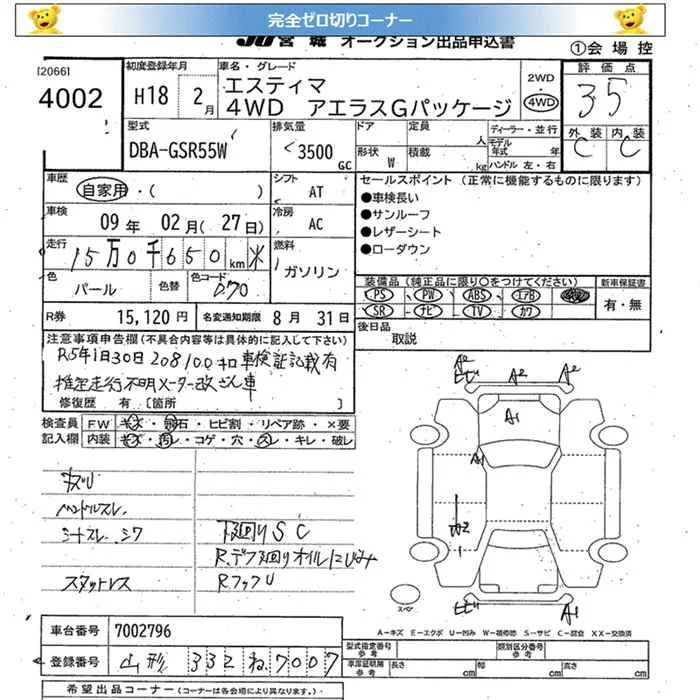 完全ゼロ切りコーナー
JU宮城 オークション出品申込書
①会場控
[2066]
4002
初度登録年月
H18 2月
車名・グレード
エスティマ
4WD アエラスGパッケージ
2WD
・
4WD
評価点
3.5
外装 内装
C C
型式
DBA-GSR55W
排気量
3500
CC
ドア 定員 人
形状 W 積載 kg
ディーラー・並行
モデル年式 年
ハンドル 左・右
車歴
自家用・( )
シフト
AT
車検
09年 02月(27日)
冷房
AC
走行
15万0千650km
燃料
ガソリン
色
パール
色替
色コード
070
R券 15,120円
名変通知期限 8月 31日
セールスポイント (正常に機能するものに限ります)
●車検長い
●サンルーフ
●レザーシート
●ローダウン
装備品 (純正品に限り○をつけてください)
PS PW ABS エアB
SR ナビ TV カワ
新車保証書
有・無
後日品
取説
注意事項申告欄(不具合内容等は具体的に記入して下さい)
R5年1月30日 208100キロ車検証記載有
推定走行不明メーター改ざん車
修復歴 有 [箇所 ]
検査員
記入欄
FW キズ・飛石・ヒビ割・リペア跡・×要
内装 キズ・汚レ・コゲ・穴・スレ・キレ・破レ
ハンドルスレ
シートスレ、シワ
下廻りSC
R.デフ廻りオイルにじみ
スタットレス
RフックU
A2
ヒビ A2 A2
A1
A1
A2
ヒビ A1
スペア
A-キズ E-エクボ U-凹み W-補修跡 S-サビ C-腐食 XX-交換済
車台番号 7002796
登録番号 山形 332 ね 7007
型式指定番号
参考
類別区分番号
参考
車庫証明用
参考
長さ cm 幅 cm 高さ cm
希望出品コーナー(コーナーは各会場により異なります。)